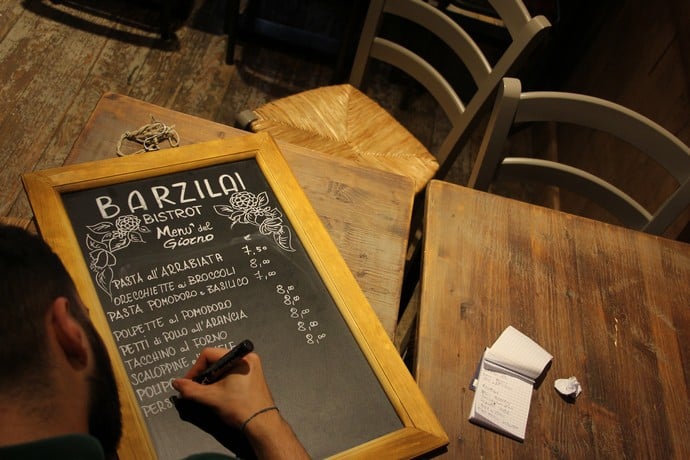 BARZILAI
BISTROT
Menu' del
Giorno
PASTA all'ARRABIATA 7,50
ORECCHIETTE ai BROCCOLI 8,00
PASTA POMODORO e BASILICO 7,50
POLPETTE al POMODORO 8,00
PETTI di POLLO all'ARANCIA 8,00
TACCHINO al FORNO 8,00
SCALOPPINE 8,00
POLIPO
PERS